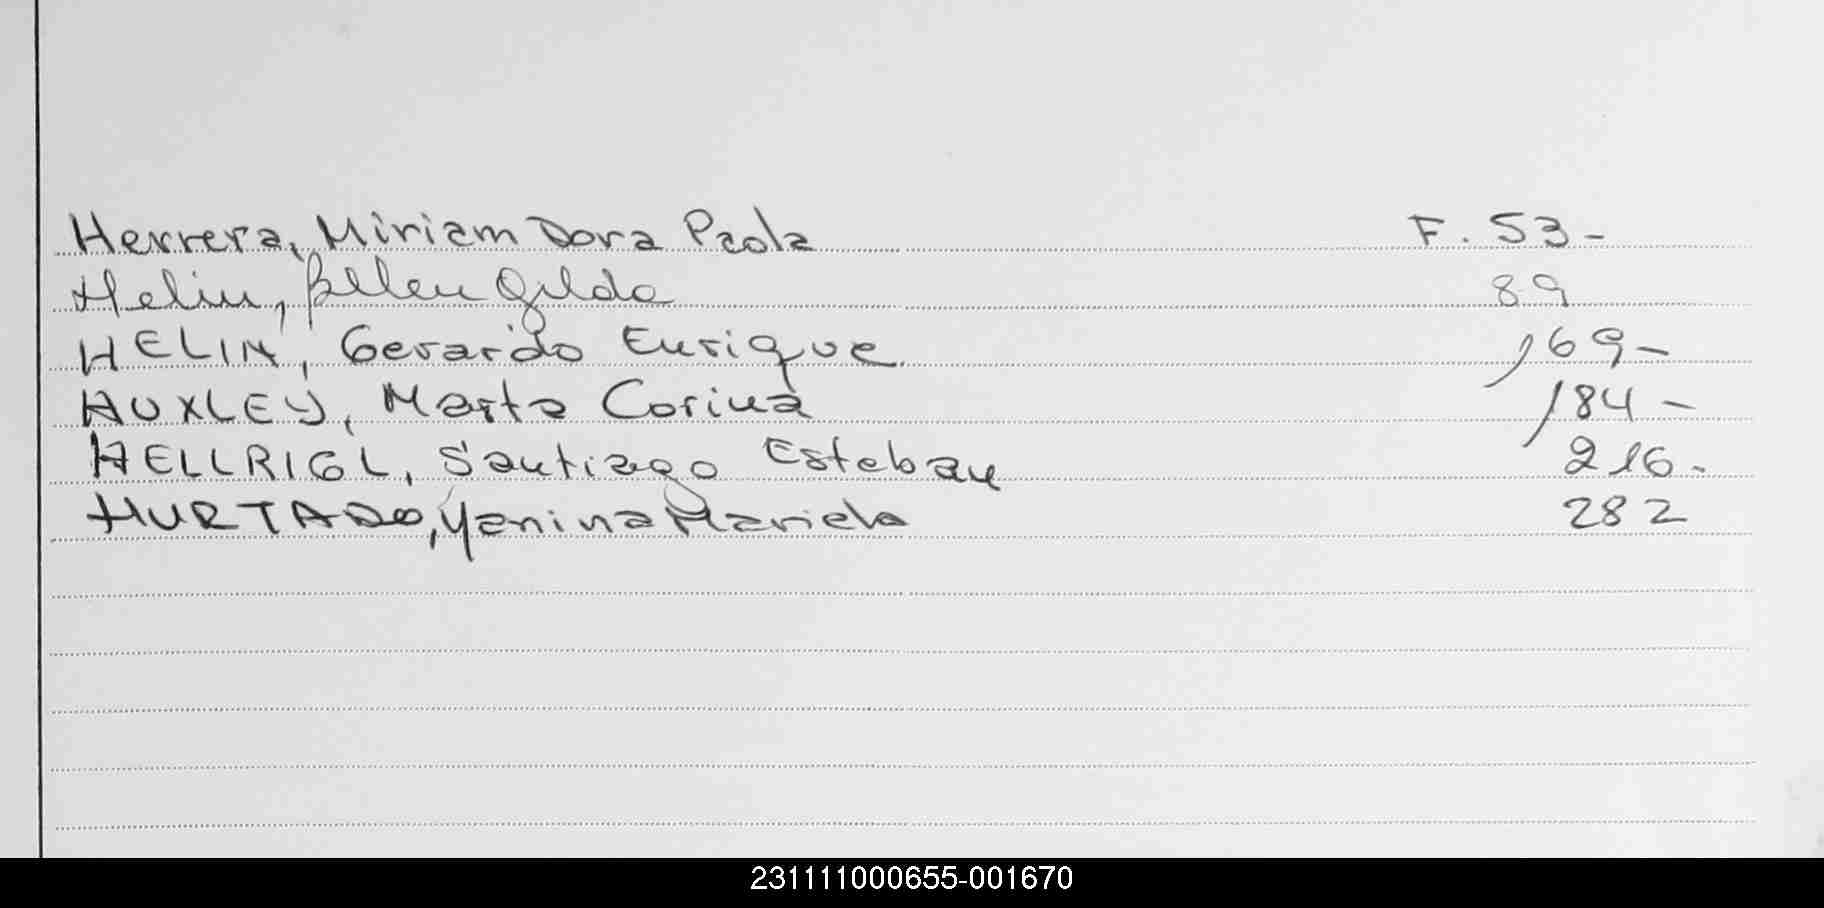 Herrera, Miriam Dora Paola F. 53-
Helin, Ellen Gilda 89
HELIN, Gerardo Enrique. 169-
HUXLEY, Marta Corina 184-
HELLRIGL, Santiago Esteban 216-
HURTADO, Yanina Mariela 282
231111000655-001670